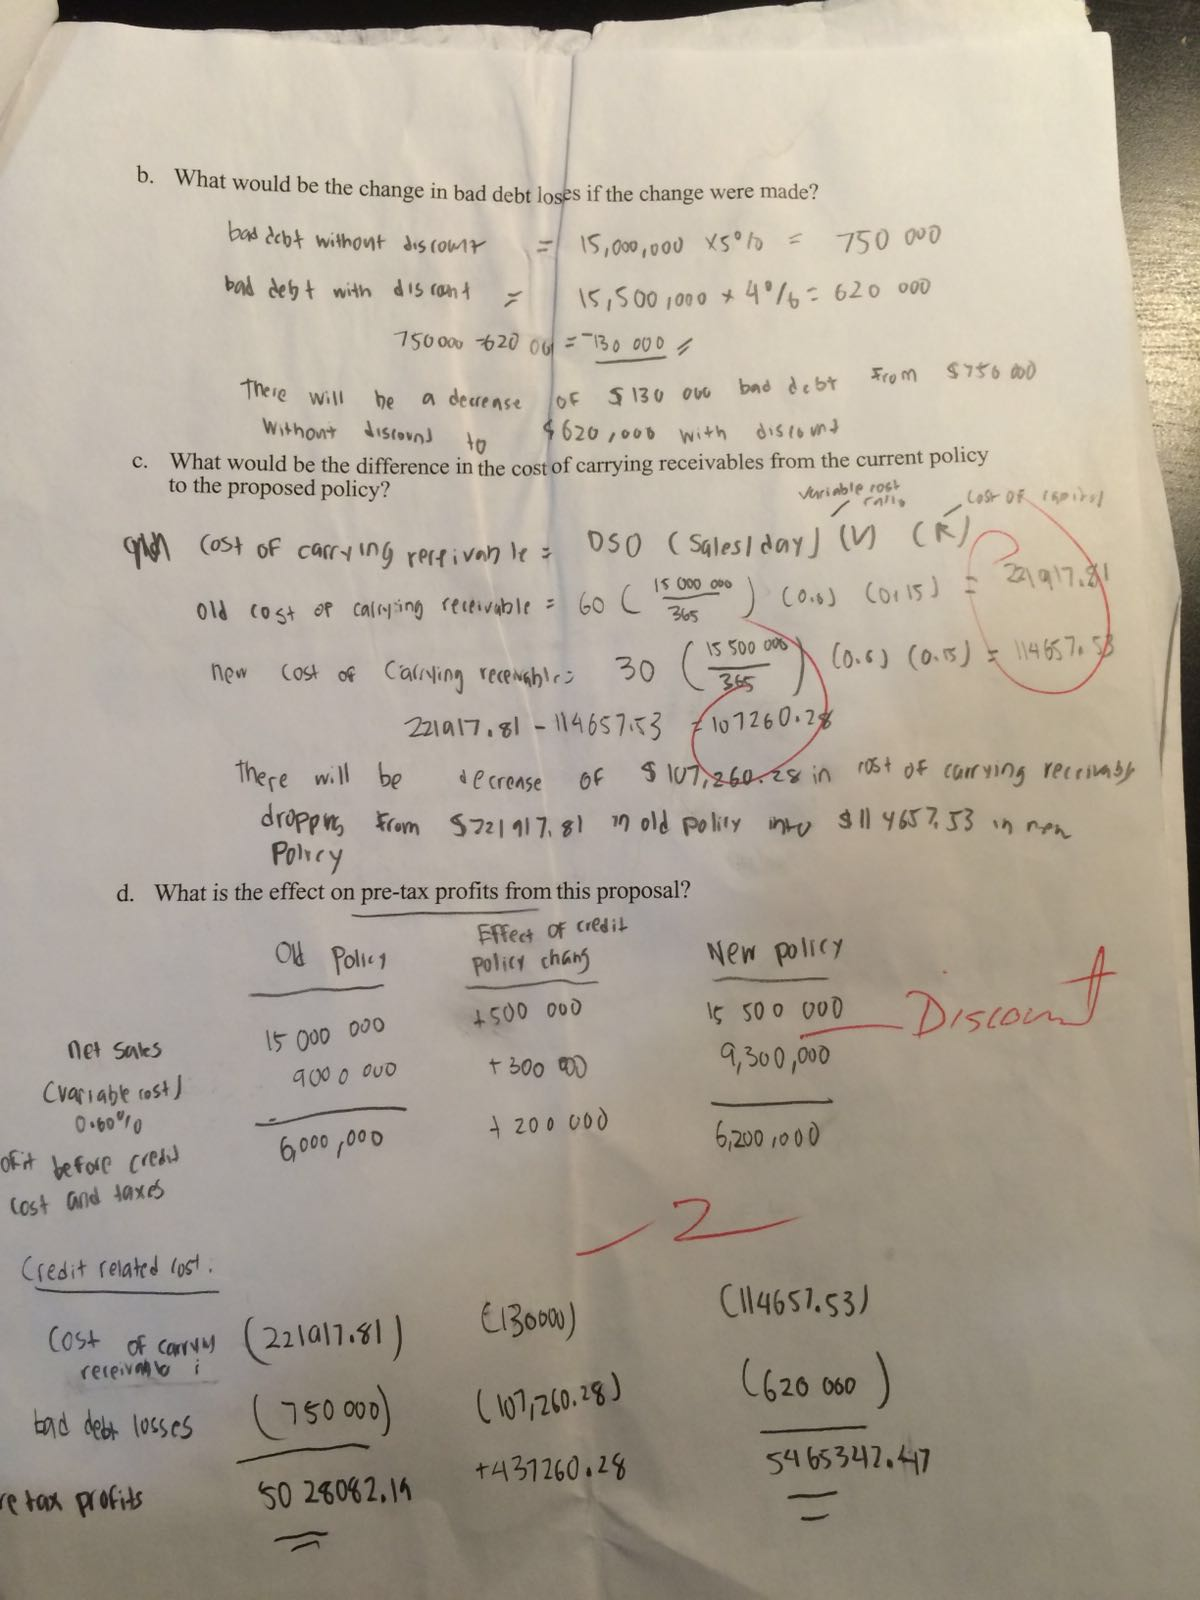 b. What would be the change in bad debt loses if the change were made?
bad debt without discount = 15,000,000 x5% = 750 000
bad debt with discant = 15,500,000 * 4% = 620 000
750000 -620 00 = -130 000
There will be a decrease of $ 130 000 bad debt from $750 000
without discound to $620,000 with discount
c. What would be the difference in the cost of carrying receivables from the current policy
to the proposed policy?
variable cost ratio
cost of capital
cost of carrying receivable = DSO (Sales/day) (V) (K)
old cost of carrying receivable = 60 (15 000 000 / 365) (0.6) (0.15) = 221917.81
new cost of Carrying receivable = 30 (15 500 000 / 365) (0.6) (0.15) = 114657.53
221917.81 - 114657.53 = 107260.28
There will be decrease of $107,260.28 in cost of carrying receivable
dropping from $221917.81 in old policy into $114657.53 in new
Policy
d. What is the effect on pre-tax profits from this proposal?
Old Policy
Effect of credit
policy chang
New policy
net sales 15 000 000 +500 000 15 500 000 Discount
(variable cost) 9000 000 +300 000 9,300,000
0.60%
ofit before credit 6,000,000 + 200 000 6,200,000
cost and taxes
-2
Credit related cost:
Cost of carryg (221917.81) (130000) (114657.53)
receivable :
bad debt losses (750 000) (107,260.28) (620 000)
re tax profits 5028082.19 +437260.28 5465342.47